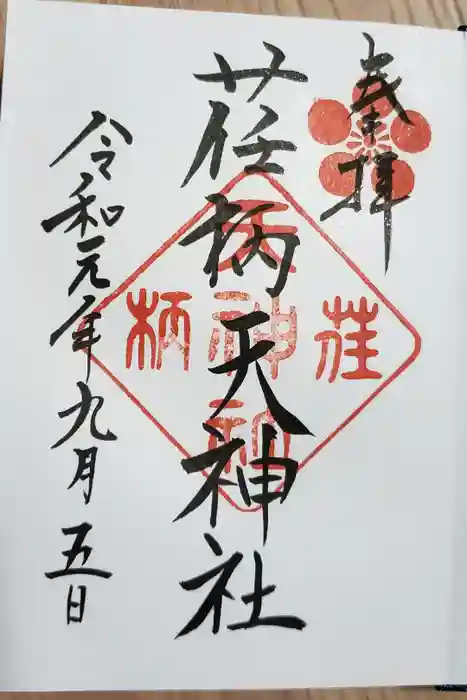 奉拝
荏柄天神社
荏柄
天神社
令和元年九月五日